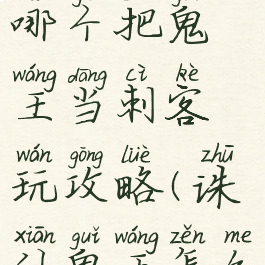 哪个把鬼
wáng dāng cì kè
王当刺客
wán gōng lüè zhū
玩攻略(诛
xiān guǐ wáng zěn me
仙鬼王怎么